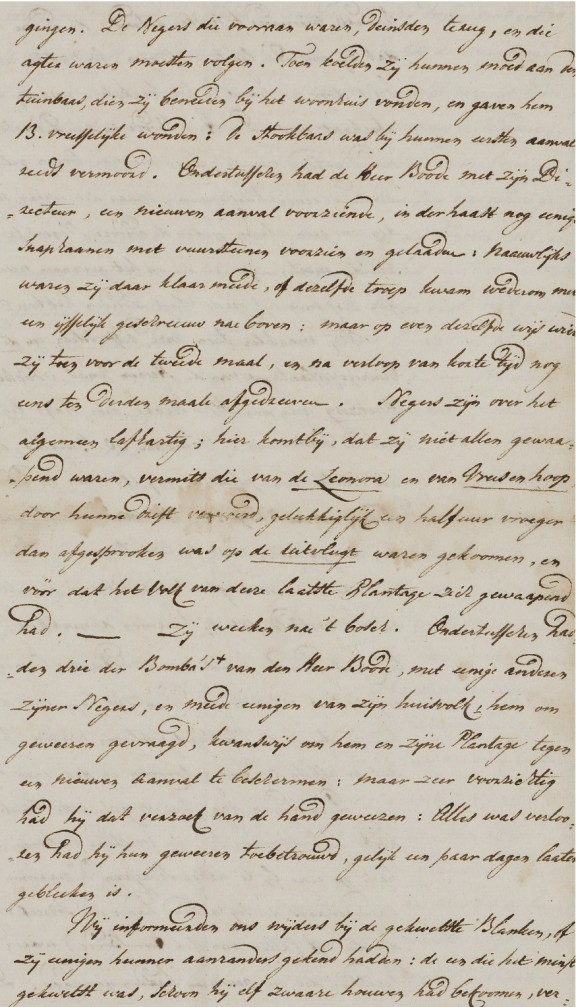 gingen. De Negers die vooraan waren, deinsden teaug, en die
agter waren moesten volgen. Toen koelden zij hunnen moed aan den
tuinbaas, dien zij beneeden bij het woonhuis vonden, en gaven hem
13. vreesselijke wonden: de Stookbaas was bij hunnen eersten aanval
reeds vermoord. Ondertusschen had de Heer Boode met zijn Di=
=recteur, een nieuwen aanval voorziende, in der haast nog eenige
snaphaanen met vuursteenen voorzien en gelaaden: naauwlijks
waren zij daar klaar meede, of dezelfde troep kwam wederom met
een ijsselijk geschreeuw nae boven: maar op even dezelfde wijs
zij toen voor de tweede maal, en na verloop van korte tijd nog
eens ten derden maale afgedreeven. Negers zijn over het
algemeen lafhartig; hier komt bij, dat zij niet allen gewaa=
=pend waren, vermits die van de Leonora en van Vreesenhoop
door hunne drift gelukkiglijk een half uur vroeger
dan afgesprooken was op de uitvlugt waren gekoomen, en
vóór dat het Volk van deeze laatste Plantage zich gewaapend
had. — Zij weeken nae 't bosch. Ondertusschen had=
=den drie der Bomba's+ van den Heer Boode, met eenige anderen
zijner Negers, en meede eenigen van zijn huisvolk, hem om
geweeren gevraagd, kwanswijs om hem en zijne Plantage tegen
een nieuwen aanval te beschermen: maar zeer voorzichtig
had hij dat verzoek van de hand geweezen: Alles was verloo=
=ren had hij hun geweeren toebetrouwd, gelijk een paar dagen laater
gebleeken is.
Wij informeerden ons wijders bij de gekwetste Blanken, of
zij eenigen hunner aanranders gekend hadden: de een die het minst
gekwetst was, schoon hij elf zwaare houwen had bekoomen, ver=